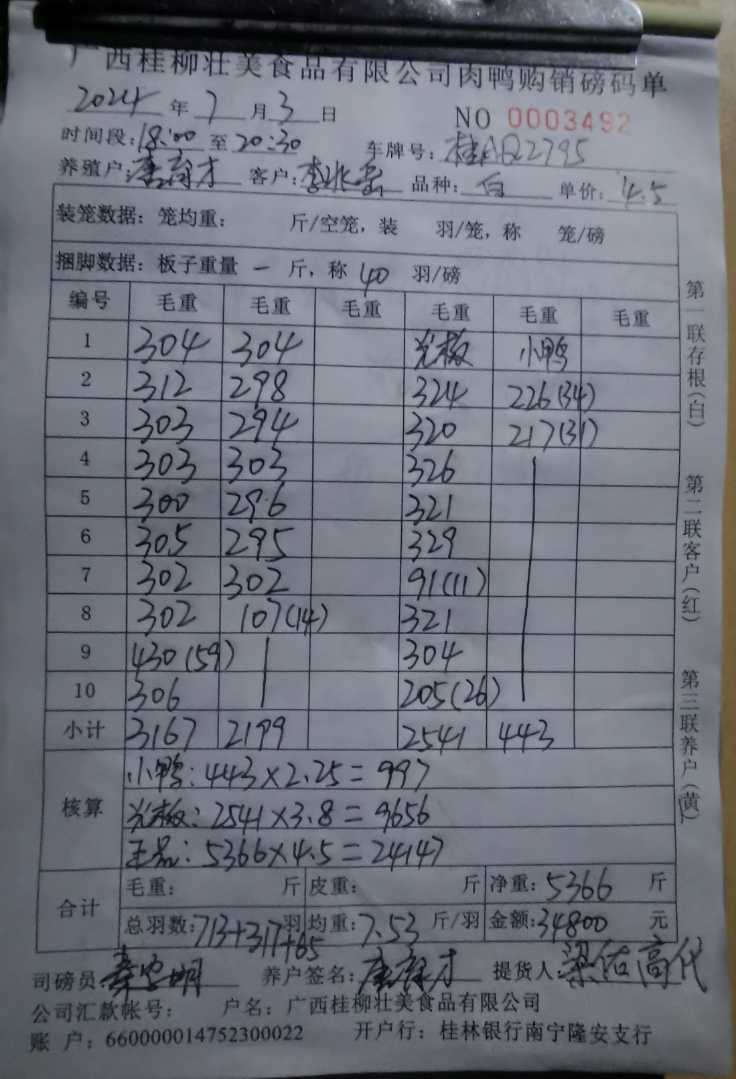 广西桂柳壮美食品有限公司肉鸭购销磅码单
2024年7月3日 NO 0003492
时间段:18:00至20:30 车牌号:桂AQ2795
养殖户: 客户: 品种:白 单价:4.5
装笼数据:笼均重: 斤/空笼,装 羽/笼,称 笼/磅
捆脚数据:板子重量一斤,称40羽/磅
编号 毛重 毛重 毛重 毛重 毛重 毛重
1 304 304 光板 小鸭
2 312 298 324 226(34)
3 303 294 320 217(31)
4 303 303 326
5 300 296 321
6 305 295 329
7 302 302 91(11)
8 302 107(14) 321
9 430(59) 304
10 306 205(26)
小计 3167 2199 2541 443
核算
小鸭:443×2.25=997
光板:2541×3.8=9656
正品:5366×4.5=24147
合计
毛重: 斤 皮重: 斤 净重:5366斤
总羽数:713+317+65羽 均重:7.53斤/羽 金额:34800元
司磅员: 养户签名: 提货人:
公司汇款帐号: 户名:广西桂柳壮美食品有限公司
账 户:660000014752300022 开户行:桂林银行南宁隆安支行
第一联存根(白)
第二联客户(红)
第三联养户(黄)